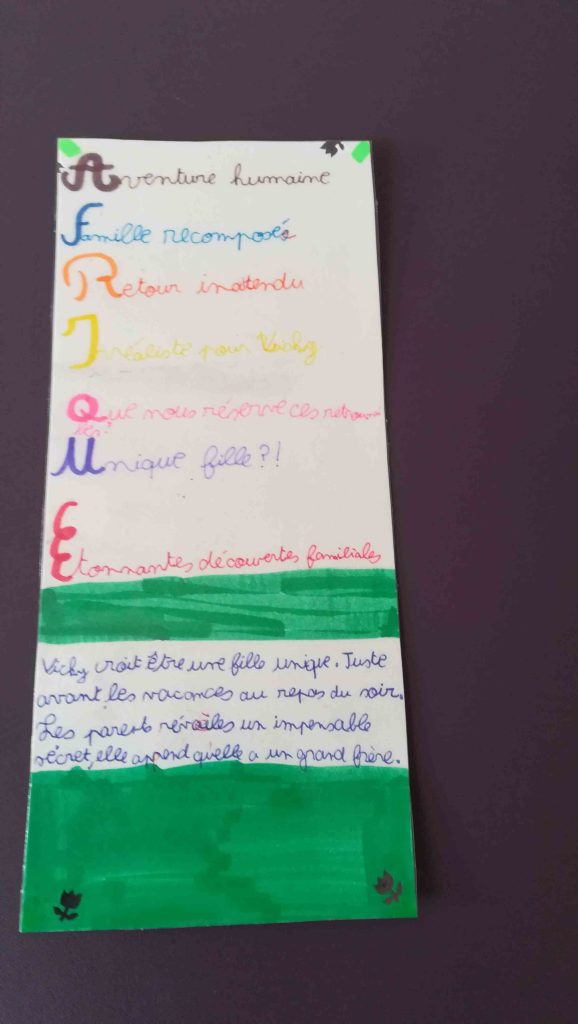 Aventure humaine
Famille recomposée
Retour inatendu
Irréaliste pour Vichy
Que nous réserve ces retrouvai
les?
Unique fille?!
Etonnantes découvertes familiales
Vichy croit Être une fille unique. Juste
avant les vacances au repas du soir.
Les parents révoiles un impensable
sécret, elle aprend qu'elle a un grand frère.